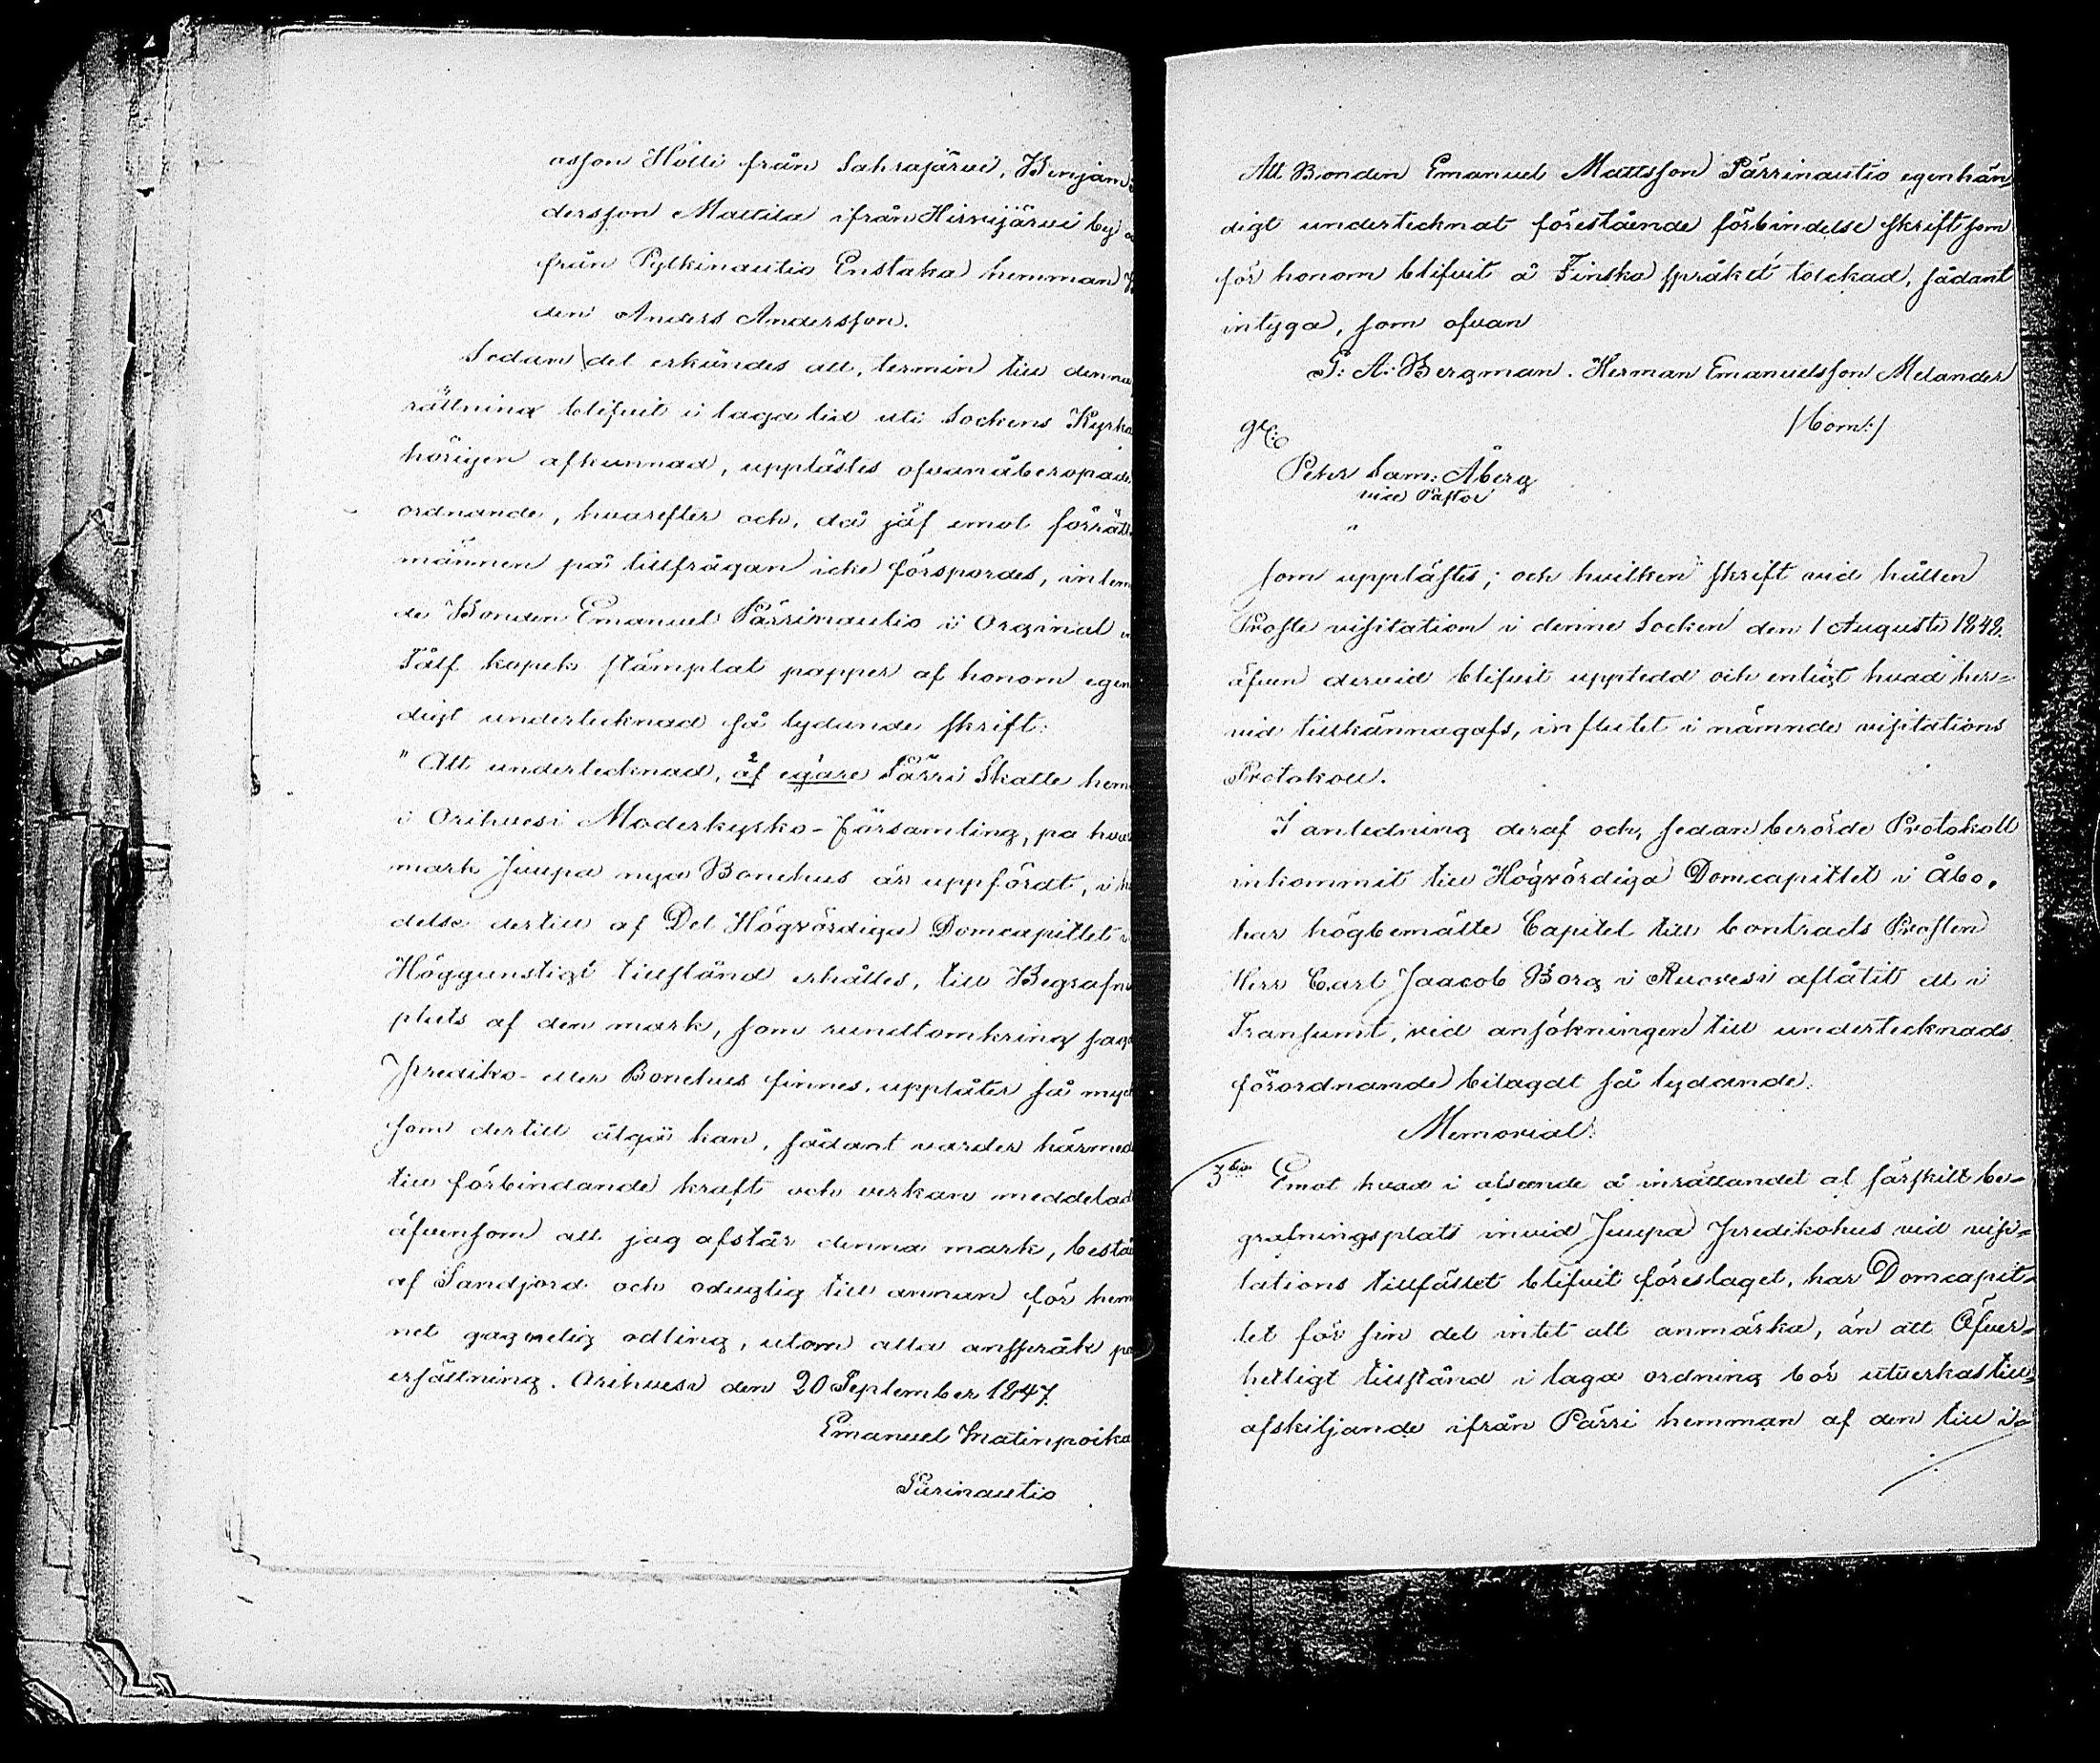 asson Hölli från Sahrajärvi, Benjam
dersson Mattila ifrån Hirvijärvi by
från Pylkinautio Enstaka hemman
den Anders Andersson.
Sedan det erkändes att, termin till denna
rättning blifvit i laga tid uti Sockens Kyrka
hörigen afkunnad, upplästes ofvanåberopade
ordnande, hvarefter och, då jäf emot förrätt
männen på tillfrågan icke förspordes, inlem
de Bonden Emanuel Pärrinautio i Orginal
Tålf kopek stämplat papper af honom egen
digt undertecknad så lydande skrift:
" Att undertecknad, af egare Pärri Skatte hem
i Orihvesi Moderkyrko-församling, pa hvar
mark Juupa nya Bönehus är uppfördt, i hä
delse dertill af Det Högvördiga Domcapitlet
Höggunstigt tillstånd erhålles, till Begrafni
plats af den mark, som rundtomkring sag
Prediko- eller Bönehus finnes, upplåter så myc
som dertill åtgå kan, sådant varder härmed
till förbindande kraft och verkan meddelad
äfvensom att jag afstår denna mark, bestå
af Sandjord och oduglig till annan för hem
net gagnelig odling, utom alla anspråk på
ersättning. Orihvesi den 20 September 1847.
Emanuel Matinpoika
Pärinautio
Att Bonden Emanuel Mattsson Pärrinautio egenhän
digt undertecknat förestående förbindelse skrift som
för honom blifvit å Finska språket tolckad, sådant
intyga, som ofvan
G: A: Bergman. Herman Emanuelsson Melander
Peter Sam: Åberg
vice Pastor
som upplästes; och hvilken skrift vid hållen
Proste visitation i denne Socken den 1 Augusti 1848.
äfven dervid blifvit upptedd och enligt hvad här=
vid tillkännagafs, influtet i nämnde visitations
Protokoll.
I anledning deraf och, sedan berörde Protokoll
inkommit till Högvördiga Domcapitlet i Åbo,
har högbemälte Capitel till Contracts Prosten
Herr Carl Jaacob Borg i Ruovesi aflåtit ett i
Transumt, vid ansökningen till undertecknads
förordnande bilagdt så lydande:
Memorial:
3:tio Emot hvad i afseende å inrättandet af särskilt be=
grafningsplats invid Juupa Predikohus vid visi=
tations tillfället blifvit föreslaget, har Domcapit=
let för sin del intet att anmärka, än att Öfver=
hetligt tillstånd i laga ordning bör utverkas till
afskiljande ifrån Pärri hemman af den till i=